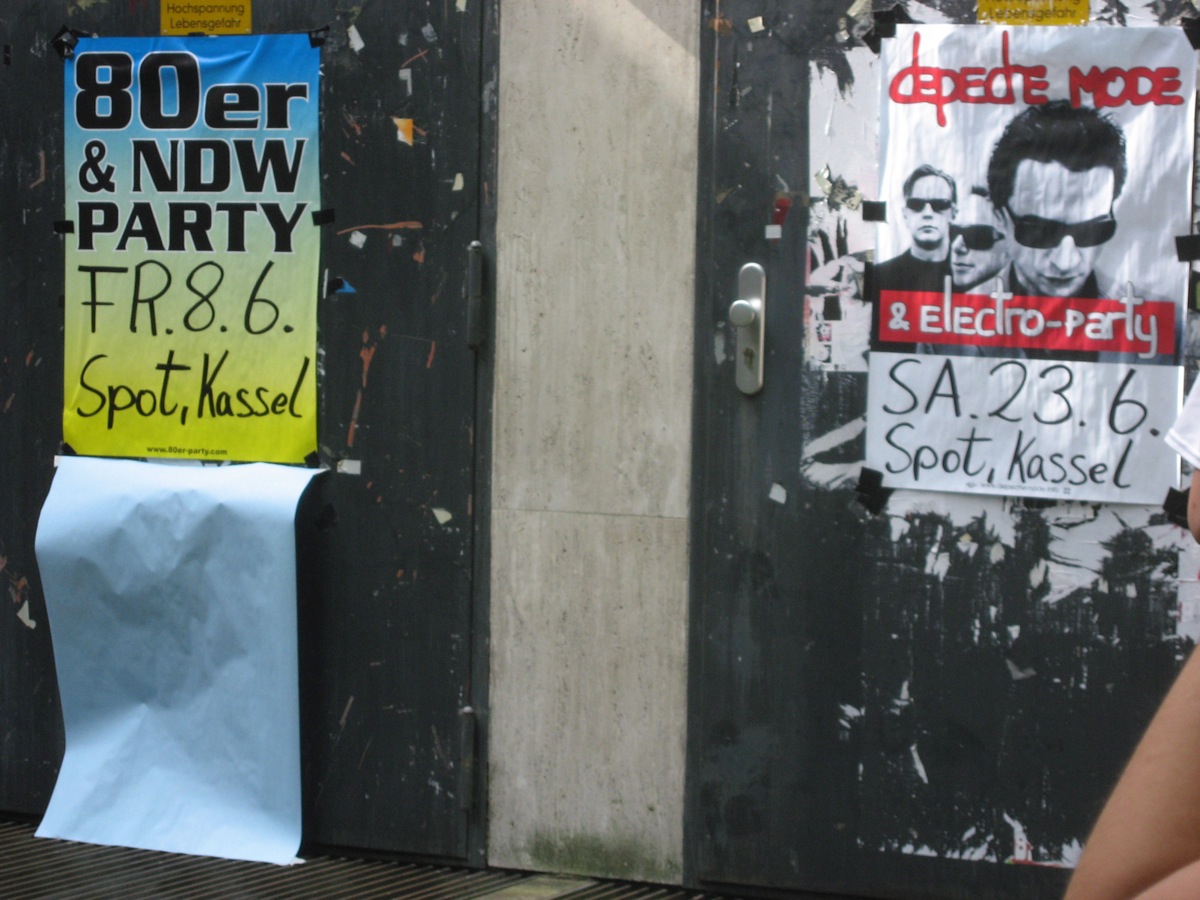 Hochspannung
Lebensgefahr
80er
& NDW
PARTY
FR.8.6.
Spot, Kassel
www.80er-party.com
Hochspannung
Lebensgefahr
depeche MODE
& electro-party
SA.23.6.
Spot, Kassel